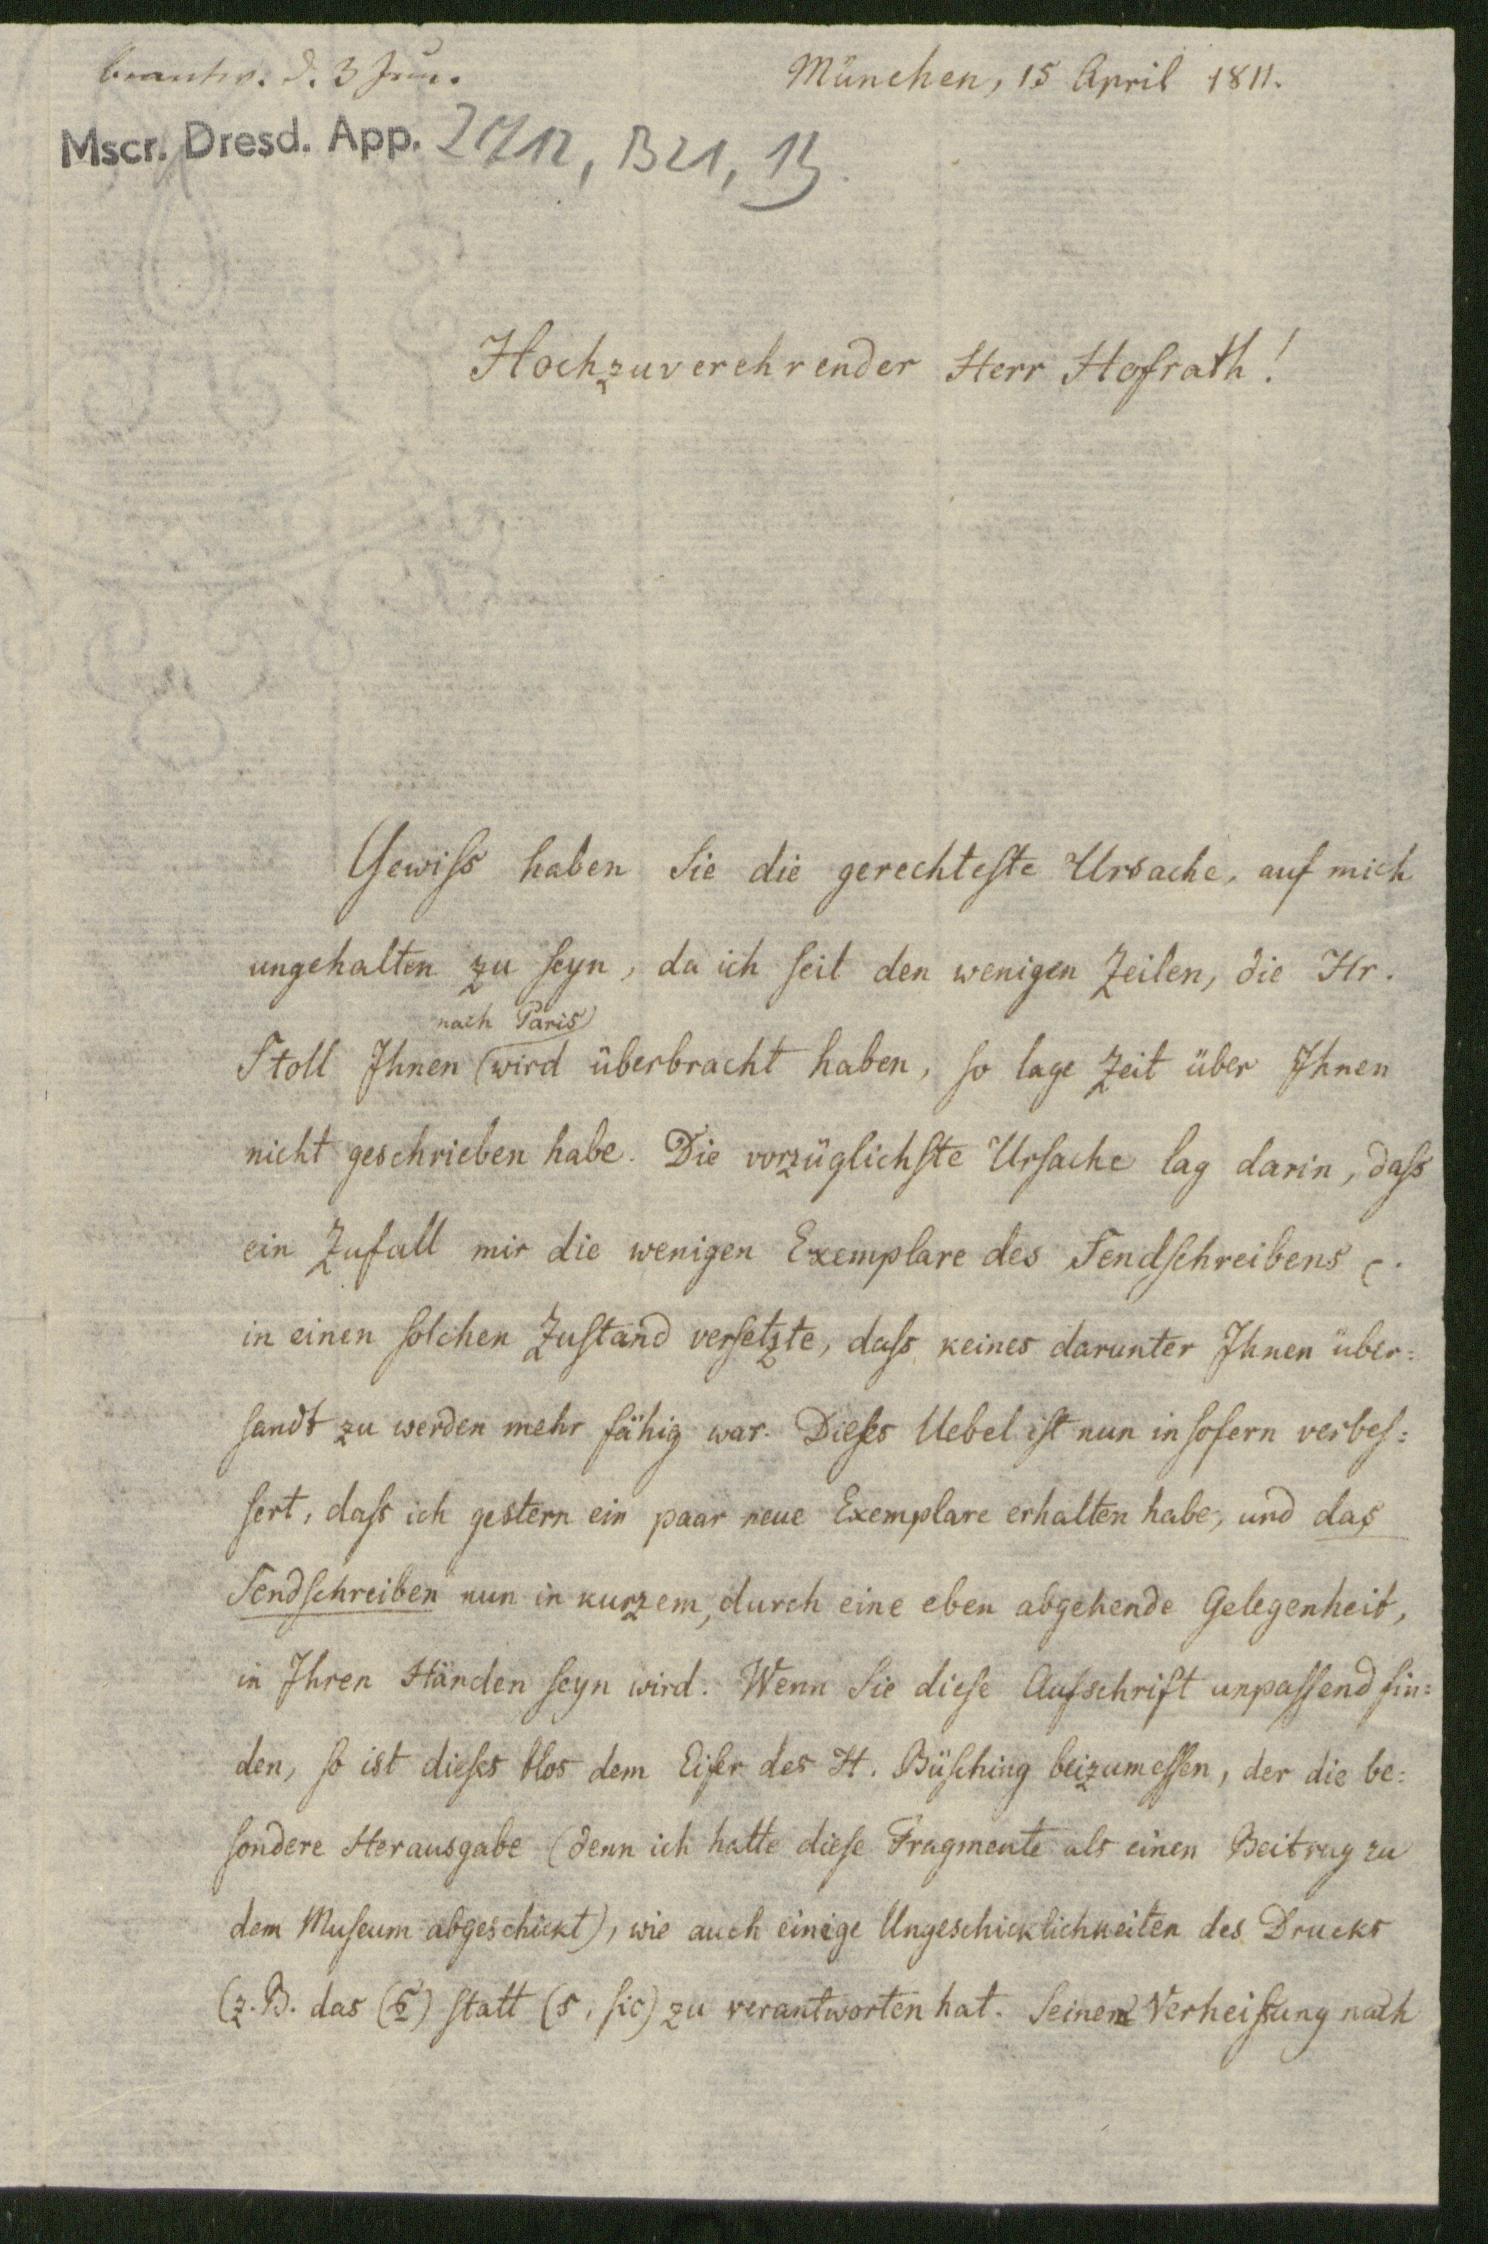 beantw. d. 3 Jun.
München, 15 April 1811.
Mscr. Dresd. App. 2712, B21, 13
Hochzuverehrender Herr Hofrath!
Gewiſs haben Sie die gerechteſte Ursache, auf mich
ungehalten zu ſeyn, da ich ſeit den wenigen Zeilen, die Hr.
nach Paris
Stoll Ihnen wird überbracht haben, ſo lage Zeit über Ihnen
nicht geschrieben habe. Die vorzüglichſte Urſache lag darin, daſs
ein Zufall mir die wenigen Exemplare des Sendſchreibens
in einen ſolchen Zuſtand verſetzte, daſs keines darunter Ihnen über:
ſandt zu werden mehr fähig war. Dieſes Uebel iſt nun in ſofern verbeſ:
ſert, daſs ich gestern ein paar neue Exemplare erhalten habe, und das
Sendſchreiben nun in kurzem, durch eine eben abgehende Gelegenheit,
in Ihren Händen ſeyn wird. Wenn Sie dieſe Aufschrift unpaſſend fin:
den, ſo ist dieſes blos dem Eifer des H. Büſching beizumeſſen, der die be:
ſondere Herausgabe (denn ich hatte dieſe Fragmente als einen Beitrag zu
dem Muſeum abgeschickt), wie auch einige Ungeschicklichkeiten des Drucks
(z. B. das (ς) ſtatt (s, ſic) zu verantworten hat. Seiner Verheiſsung nach